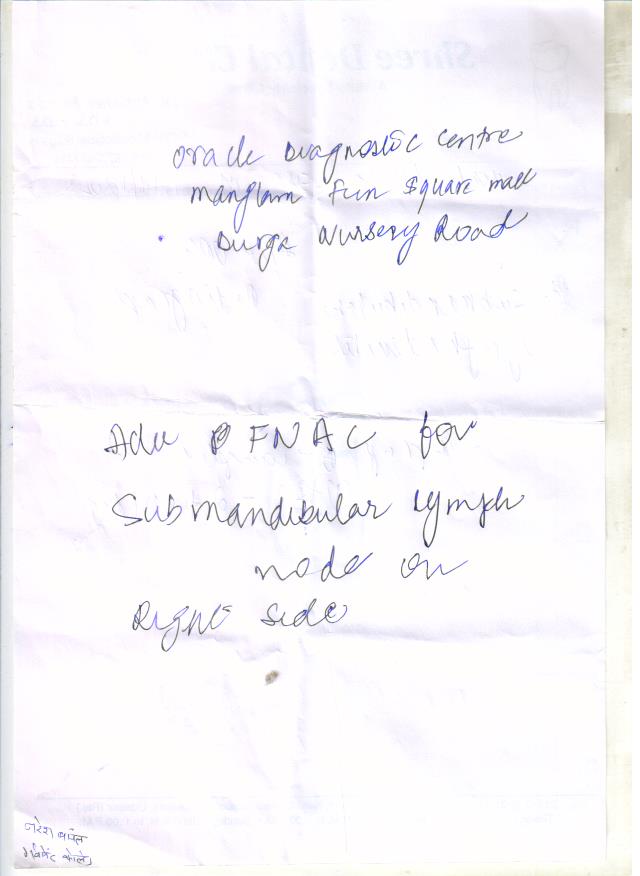 Oracle Diagnostic Centre
Manglam Fun Square Mall
Durga Nursery Road
Adv FNAC for
Submandibular lymph
node on
Right side
नरेश